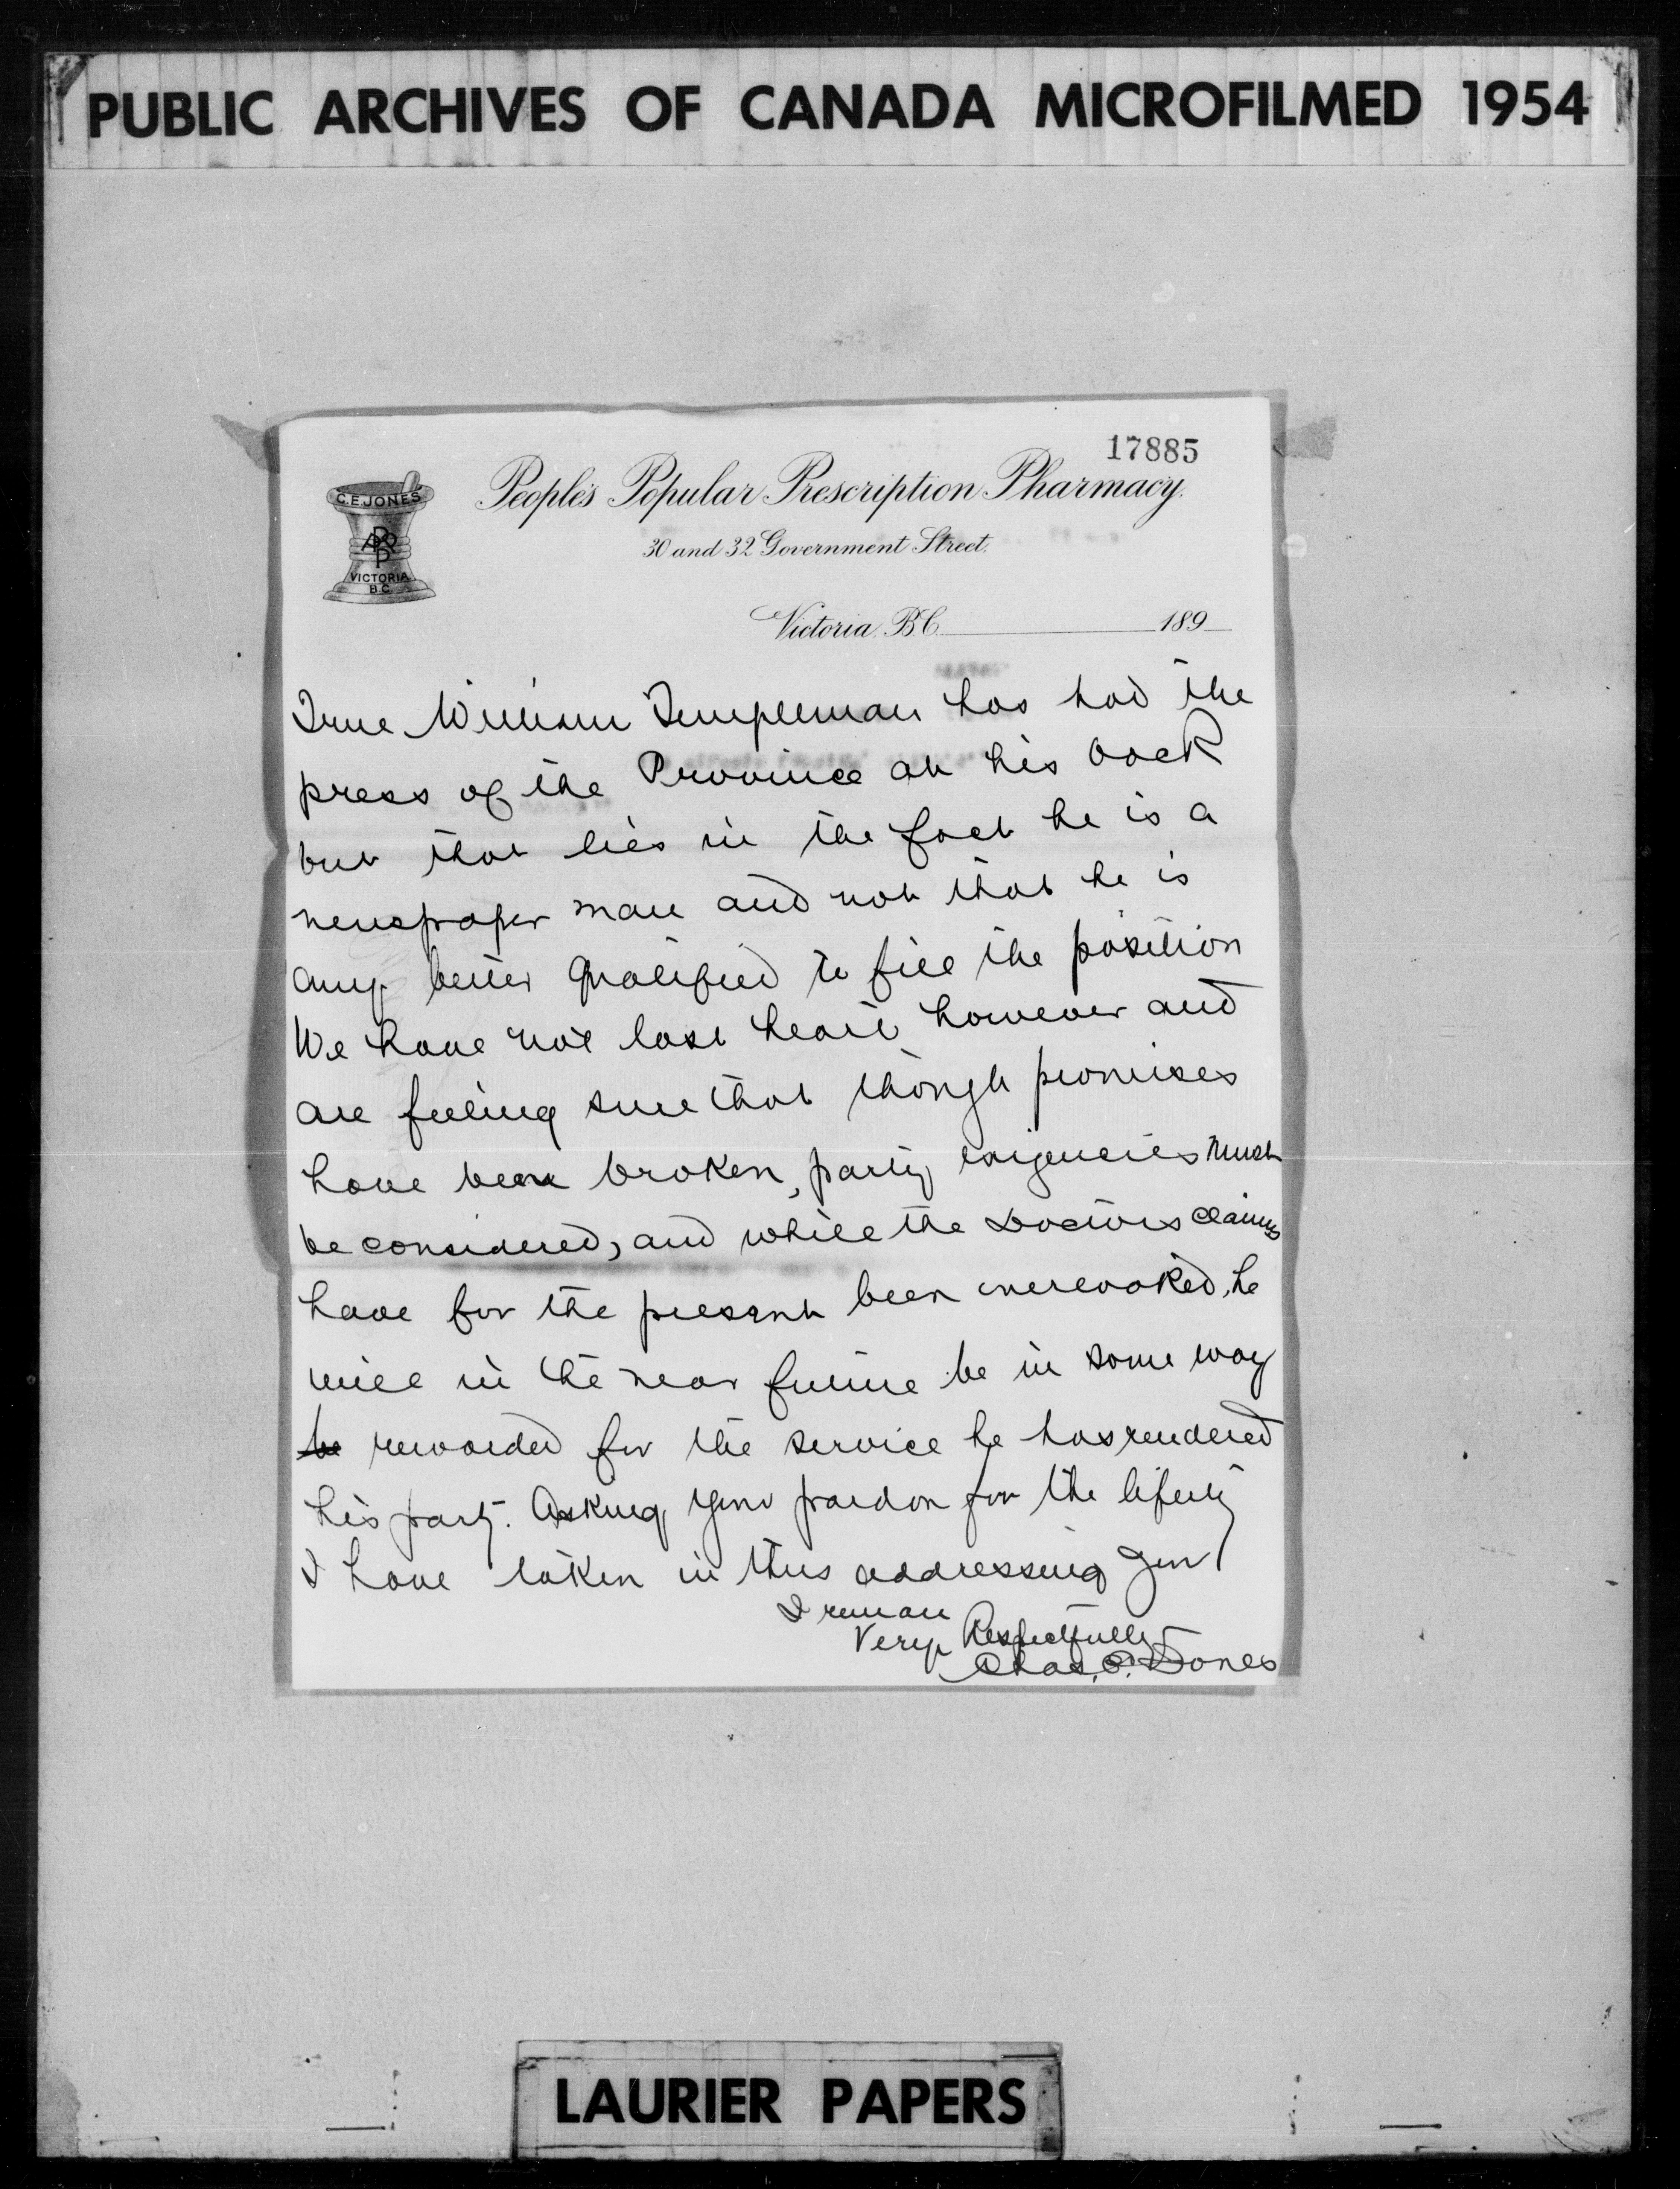 PUBLIC ARCHIVES OF CANADA MICROFILMED 1954
17885
C.E. JONES
PPPP
VICTORIA
B.C.
People's Popular Prescription Pharmacy.
30 and 32 Government Street.
Victoria, B.C. 189
True William Templeman has had the
press of the Province at his back
but that lies in the fact he is a
newspaper man and not that he is
any better qualified to fill the position
We have not lost heart however and
are feeling sure that though promises
have been broken, party exigencies must
be considered, and while the Doctors claims
have for the present been overlooked, he
will in the near future be in some way
be rewarded for the service he has rendered
his party. Asking your pardon for the liberty
I have taken in thus addressing you
I remain
Very Respectfully
Chas. E. Jones
LAURIER PAPERS